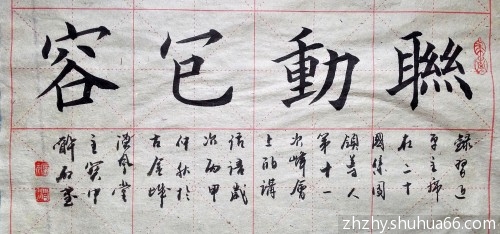 聯動包容
錄習近
平主席
在二十
國集團
領導人
第十一
次峰會
上的講
話語歲
次丙申
仲秋於
古金城
漢風堂
主寶中
石書
zhzhy.shuhua66.com